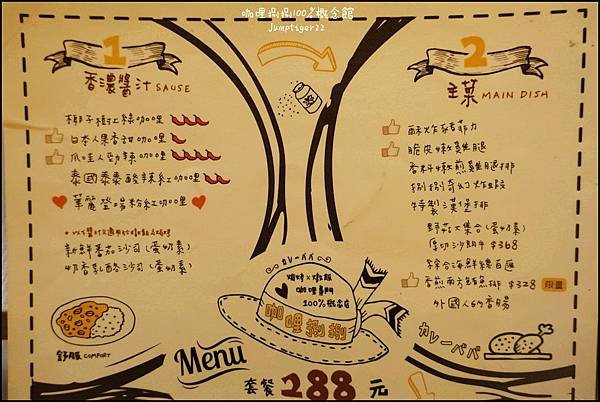 咖哩掰掰100%概念館
Jumptiger22
1
香濃醬汁 SAUSE
椰子樹上綠咖哩
日本人果香甜咖哩
爪哇人勁辣咖哩
泰國泰泰酸辣紅咖哩
華麗登場粉紅咖哩
新鮮番茄沙司(蛋奶素)
奶香乳酪沙司(蛋奶素)
舒服 COMFORT
2
主菜 MAIN DISH
酥炸豬菲力
脆皮嫩雞腿
香料嫩煎雞腿排
特製漢堡排
野菇大集合(蛋奶素)
厚切沙朗牛 $368
綜合海鮮總百匯
香煎南方鮪魚排 $328 限量
外國人的香腸
カレーパパ
カレーパパ
焗烤×燉飯
咖哩專門
100%概念店
咖哩掰掰
Menu
套餐 288 元